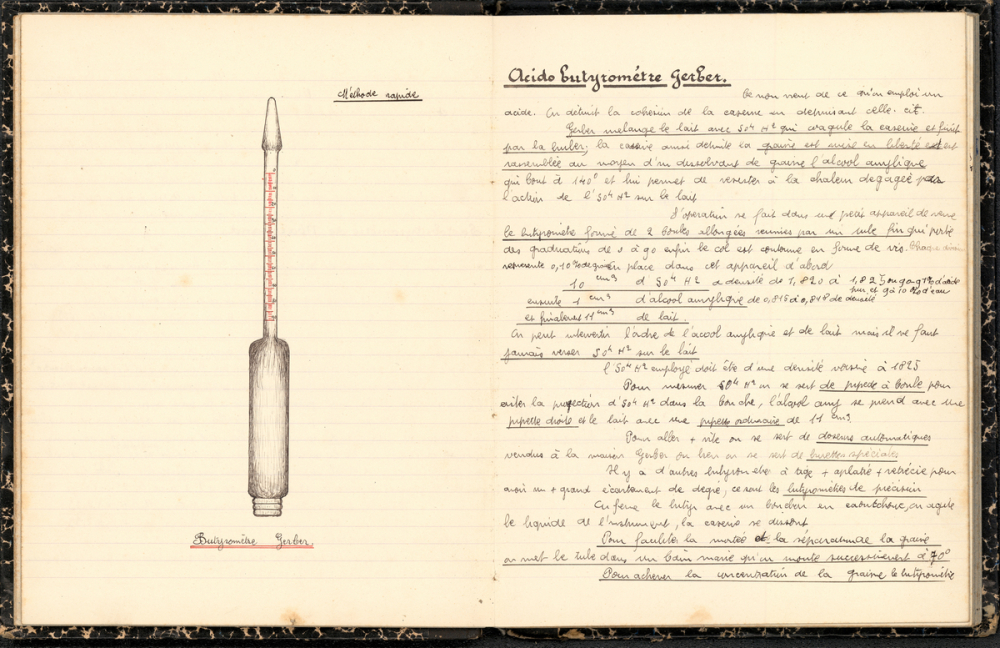 Méthode rapide
Butyromètre Gerber.
Acido butyrométre Gerber.
Ce nom vient de ce qu'on emploi un
acide. On détruit la cohésion de la caseine en detruisant celle-ci.
Gerber melange le lait avec SO4 H2 qui coagule la caseine et finit
par la bruler; la caseine ainsi détruite la graisse est mise en liberté et est
rassemblée au moyen d'un dissolvant de graisse l'alcool amylique
qui bout à 140° et lui permet de resister à la chaleur degagée par
l'action de l'SO4 H2 sur le lait
L'operation se fait dans un petit appareil de verre
le butyromètre formé de 2 boules allongées reunies par un tube fin qui porte
des graduations de 0 à 90 enfin le col est contourné en forme de vis. Chaque
represente 0,10% de on place dans cet appareil d'abord
10 cm3 d SO4 H2 a densité de 1,820 à 1,825 ou 90 à 91% d'acide
pur et 9 à 10% d'eau
ensuite 1 cm3 d'alcool amylique de 0,815 à 0,818 de densité
et finalement 11 cm3 de lait.
On peut intervertir l'ordre de l'alcool amylique et de lait mais il ne faut
jamais verser SO4 H2 sur le lait
l'SO4 H2 employé doit être d'une densité voisine à 1825
Pour mesurer SO4 H2 on se sert de pipette à boule pour
eviter la projection d'SO4 H2 dans la bouche, l'alcool amyl se prend avec une
pipette droite et le lait avec une pipette ordinaire de 11 cm3.
Pour aller + vite on se sert de doseurs automatiques
vendus à la maison Gerber ou bien on se sert de burettes spéciales
Il y a d'autres butyrometre à tige + aplatie + retrécie pour
avoir un + grand écartement de degré, ce sont les butyromètres de précision
On ferme le butyr avec un bouchon en caoutchouc, on agite
le liquide de l'instrument, la caseine se dissout
Pour faciliter la montée et la séparation de la graisse
on met le tube dans un bain marie qu'on monte successivement à 70°
Pour achever la concentration de la graisse le butyromètre